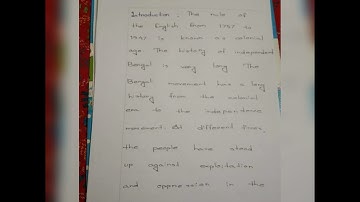 Introduction : The rule of
the English from 1757 to
1947 is known as colonial
age. The history of independent
Bengal is very long. The
Bengal movement has a long
history from the colonial
era to the independence
movement. At different times,
the people have stood
up against exploitation
and oppression in the